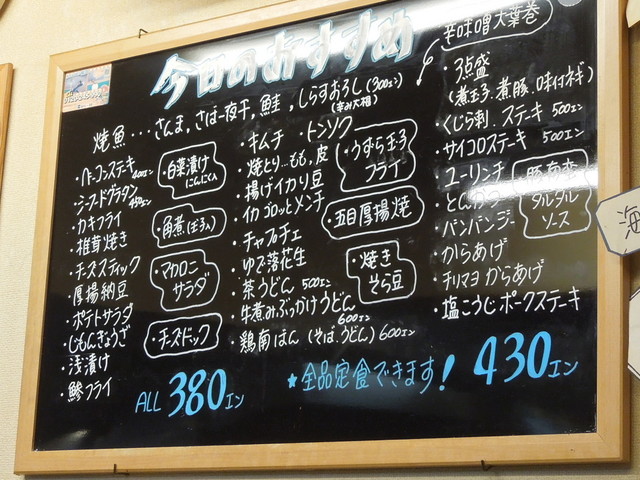 今日のおすすめ
辛味噌大葉巻
焼魚…さんま。さば一夜干。鮭。しらすおろし(300エン)
(辛み大根)
・3点盛
(煮玉子、煮豚、味付ネギ)
・くじら刺。ステーキ 500エン
・サイコロステーキ 500エン
・ユーリンチ
・とんかつ
・バンバンジー
・からあげ
・チリマヨからあげ
・塩こうじポークステーキ
タルタル
ソース
・キムチ ・トンソク
・焼とり…もも,皮
・揚げイカり豆
・イカゴロッとメンチ
・チャプチェ
・ゆで落花生
・茶うどん 500エン
・牛煮みぶっかけうどん
600エン
・鶏南ばん(そば、うどん)600エン
・うずら玉子
フライ
・五目厚揚焼
・焼き
そら豆
・ベーコンステーキ 400エン
・シーフードグラタン
・カキフライ
・椎茸焼き
・チーズスティック
・厚揚納豆
・ポテトサラダ
・じもんぎょうざ
・浅漬け
・鯵フライ
・白菜漬け
にんにく入
・角煮(玉子入)
・マカロニ
サラダ
・チーズドック
ALL 380エン
★全品定食できます! 430エン
海